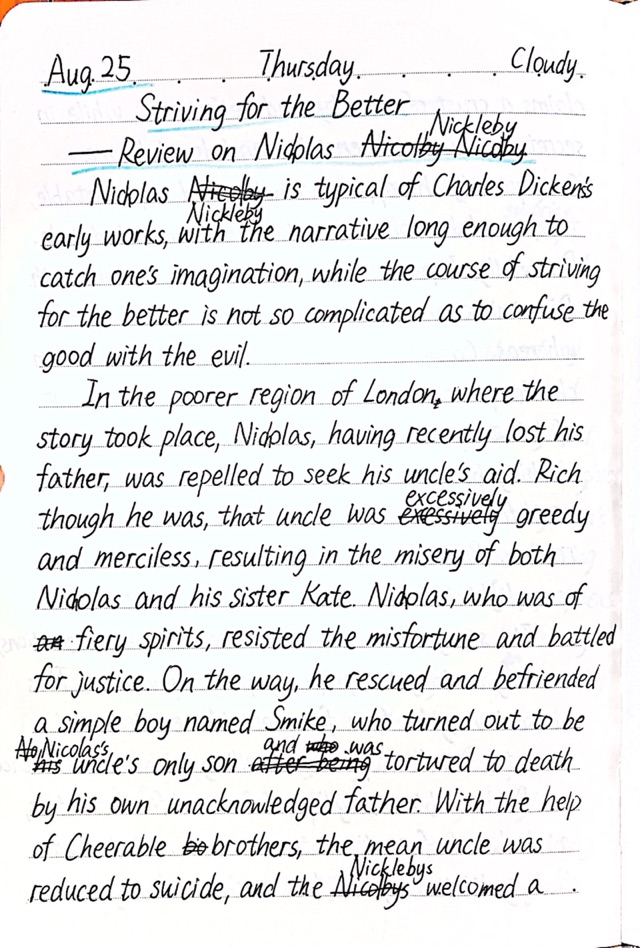 Aug. 25 Thursday Cloudy
Striving for the Better
Nickleby
— Review on Nicolas Nicolby Nicoby
Nicolas Nicolby is typical of Charles Dickens's
Nickleby
early works, with the narrative long enough to
catch one's imagination, while the course of striving
for the better is not so complicated as to confuse the
good with the evil.
In the poorer region of London, where the
story took place, Nicolas, having recently lost his
father, was repelled to seek his uncle's aid. Rich
excessively
though he was, that uncle was exessively greedy
and merciless, resulting in the misery of both
Nicolas and his sister Kate. Nicolas, who was of
an fiery spirits, resisted the misfortune and battled
for justice. On the way, he rescued and befriended
a simple boy named Smike, who turned out to be
No Nicolas's and who was
his uncle's only son after being tortured to death
by his own unacknowledged father. With the help
of Cheerable bo brothers, the mean uncle was
Nicklebys
reduced to suicide, and the Nicolbys welcomed a